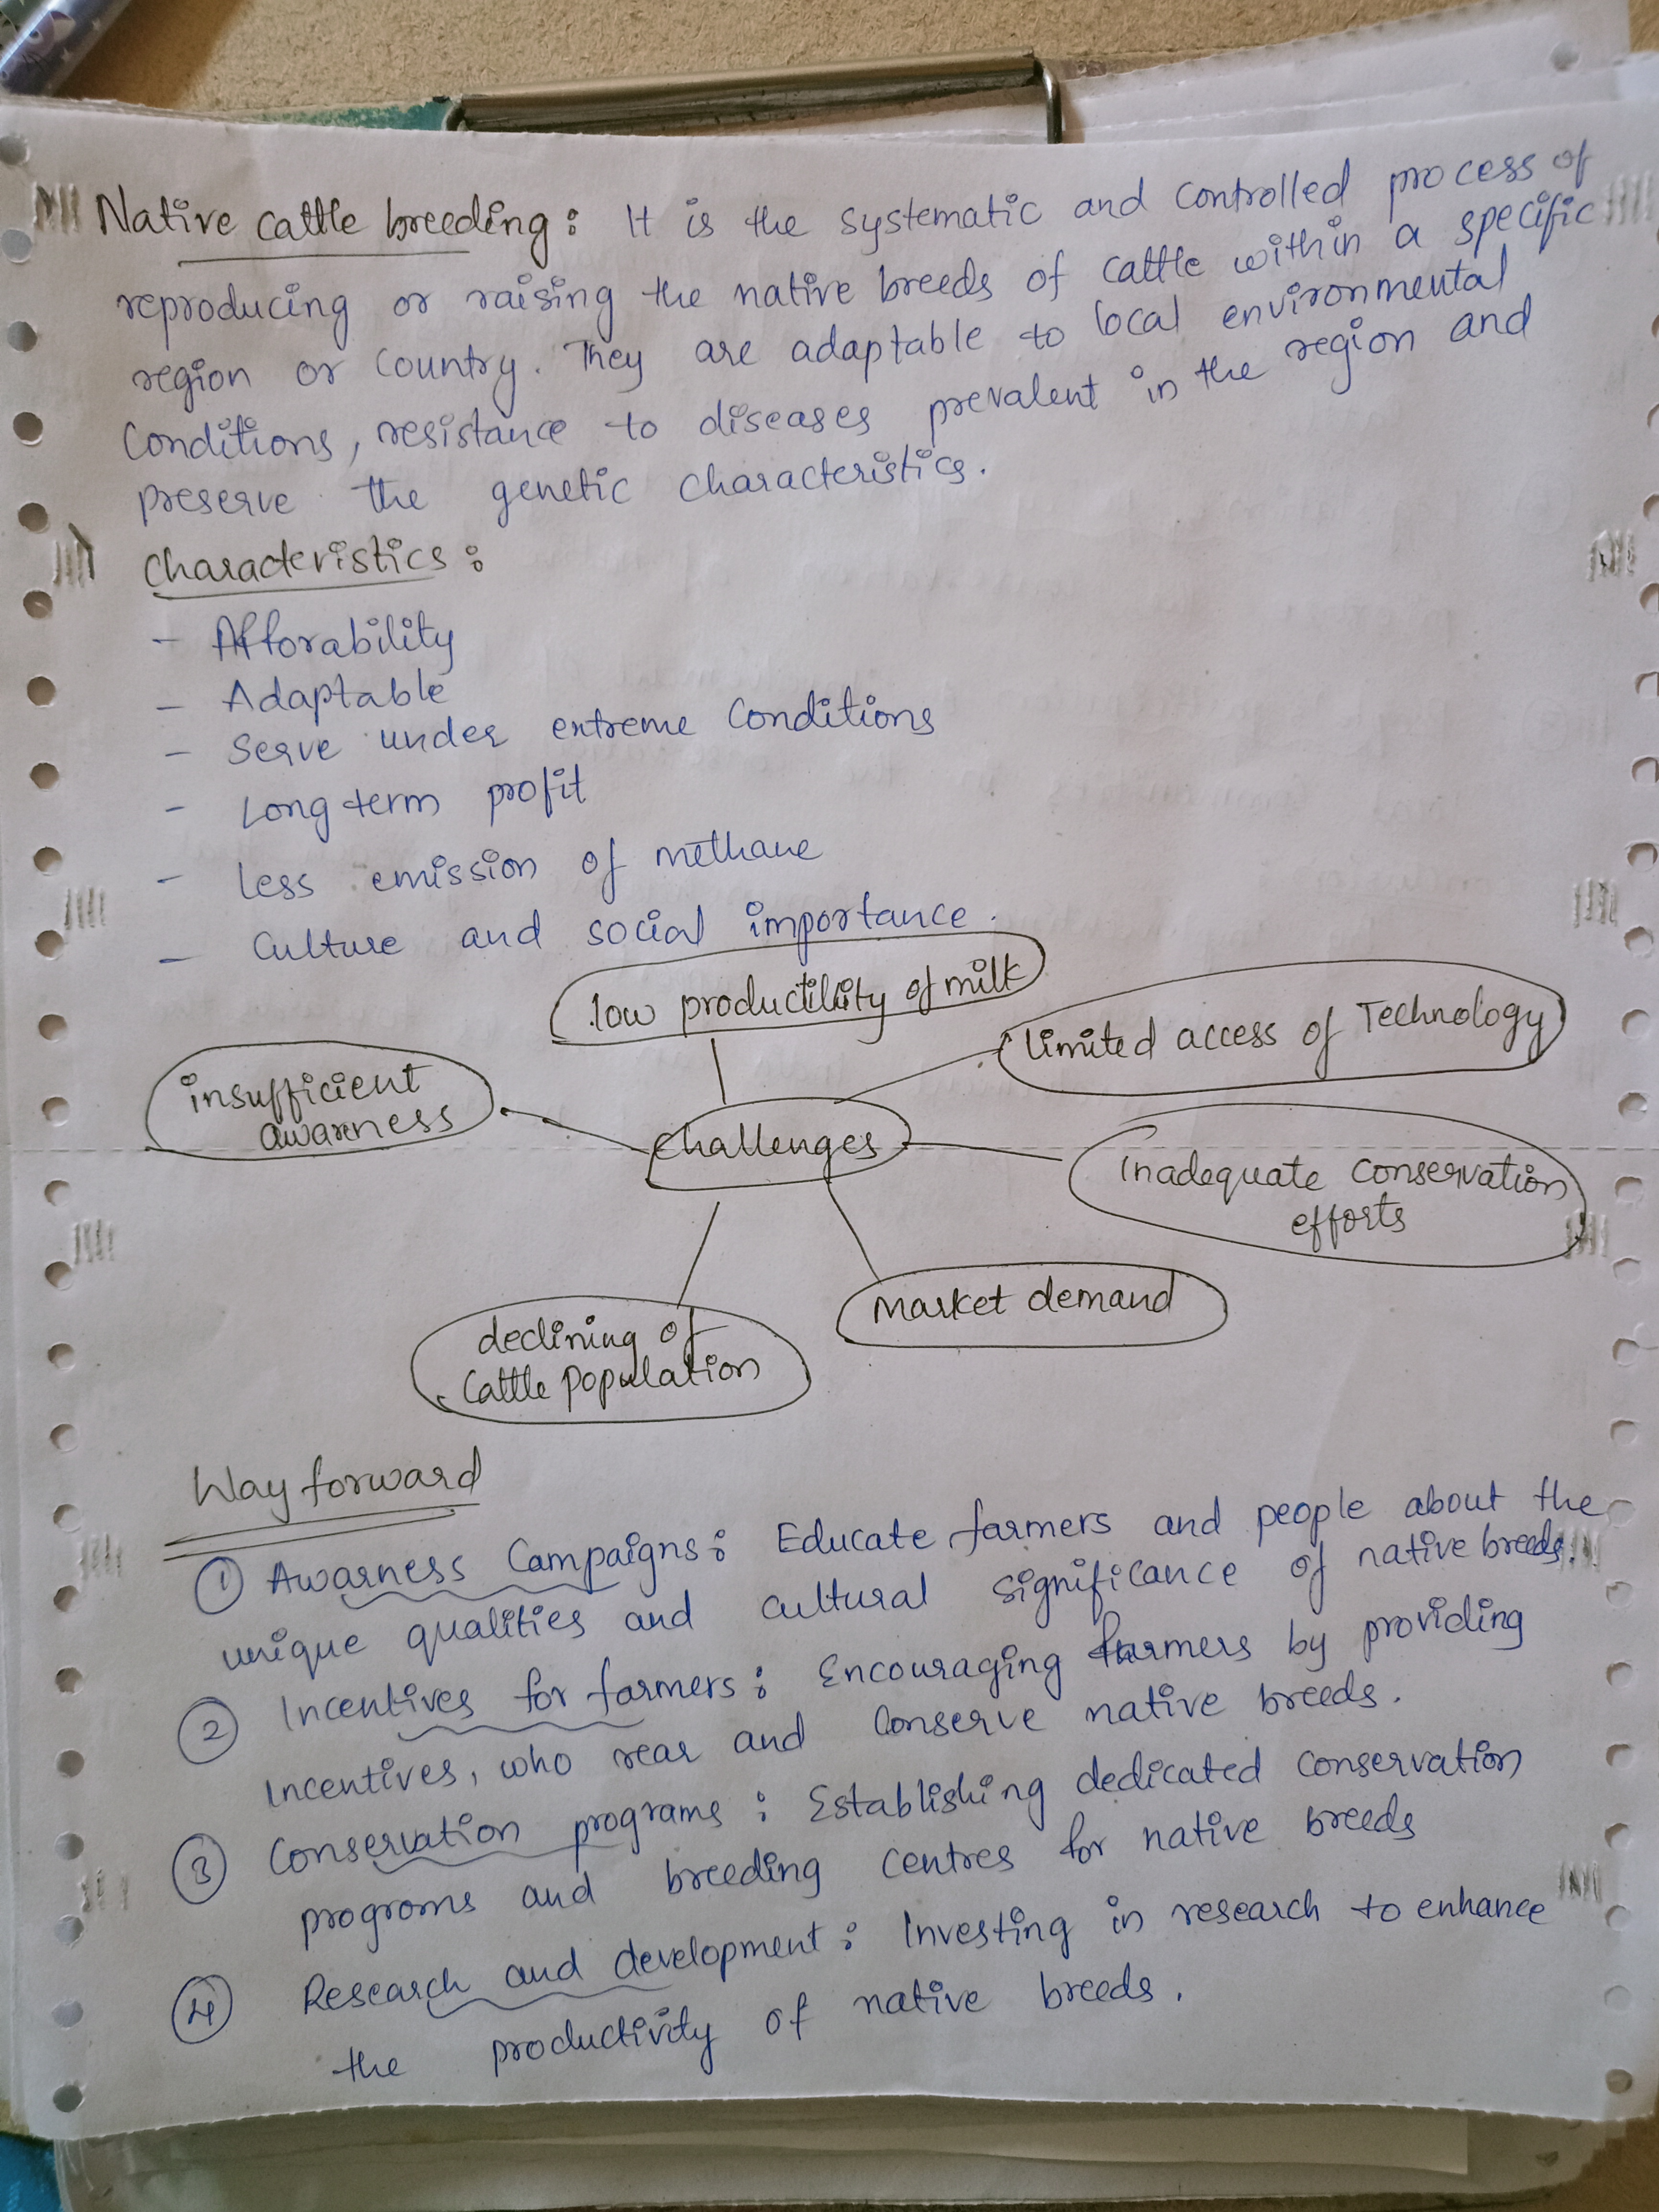 Native cattle breeding: It is the systematic and controlled process of
reproducing or raising the native breeds of cattle within a specific
region or country. They are adaptable to local environmental
conditions, resistance to diseases prevalent in the region and
preserve the genetic characteristics.
Characteristics:
- Afforability
- Adaptable
- Serve under extreme conditions
- Long term profit
- Less emission of methane
- Culture and social importance.
low productility of milk
limited access of Technology
insufficient
awarness
challenges
inadequate conservation
efforts
market demand
declining of
cattle population
Way forward
① Awarness Campaigns: Educate farmers and people about the
unique qualities and cultural significance of native breeds.
② Incentives for farmers: Encouraging farmers by providing
Incentives, who rear and conserve native breeds.
③ Conservation programs: Establishing dedicated conservation
programs and breeding centres for native breeds
④ Research and development: Investing in research to enhance
the productivity of native breeds.